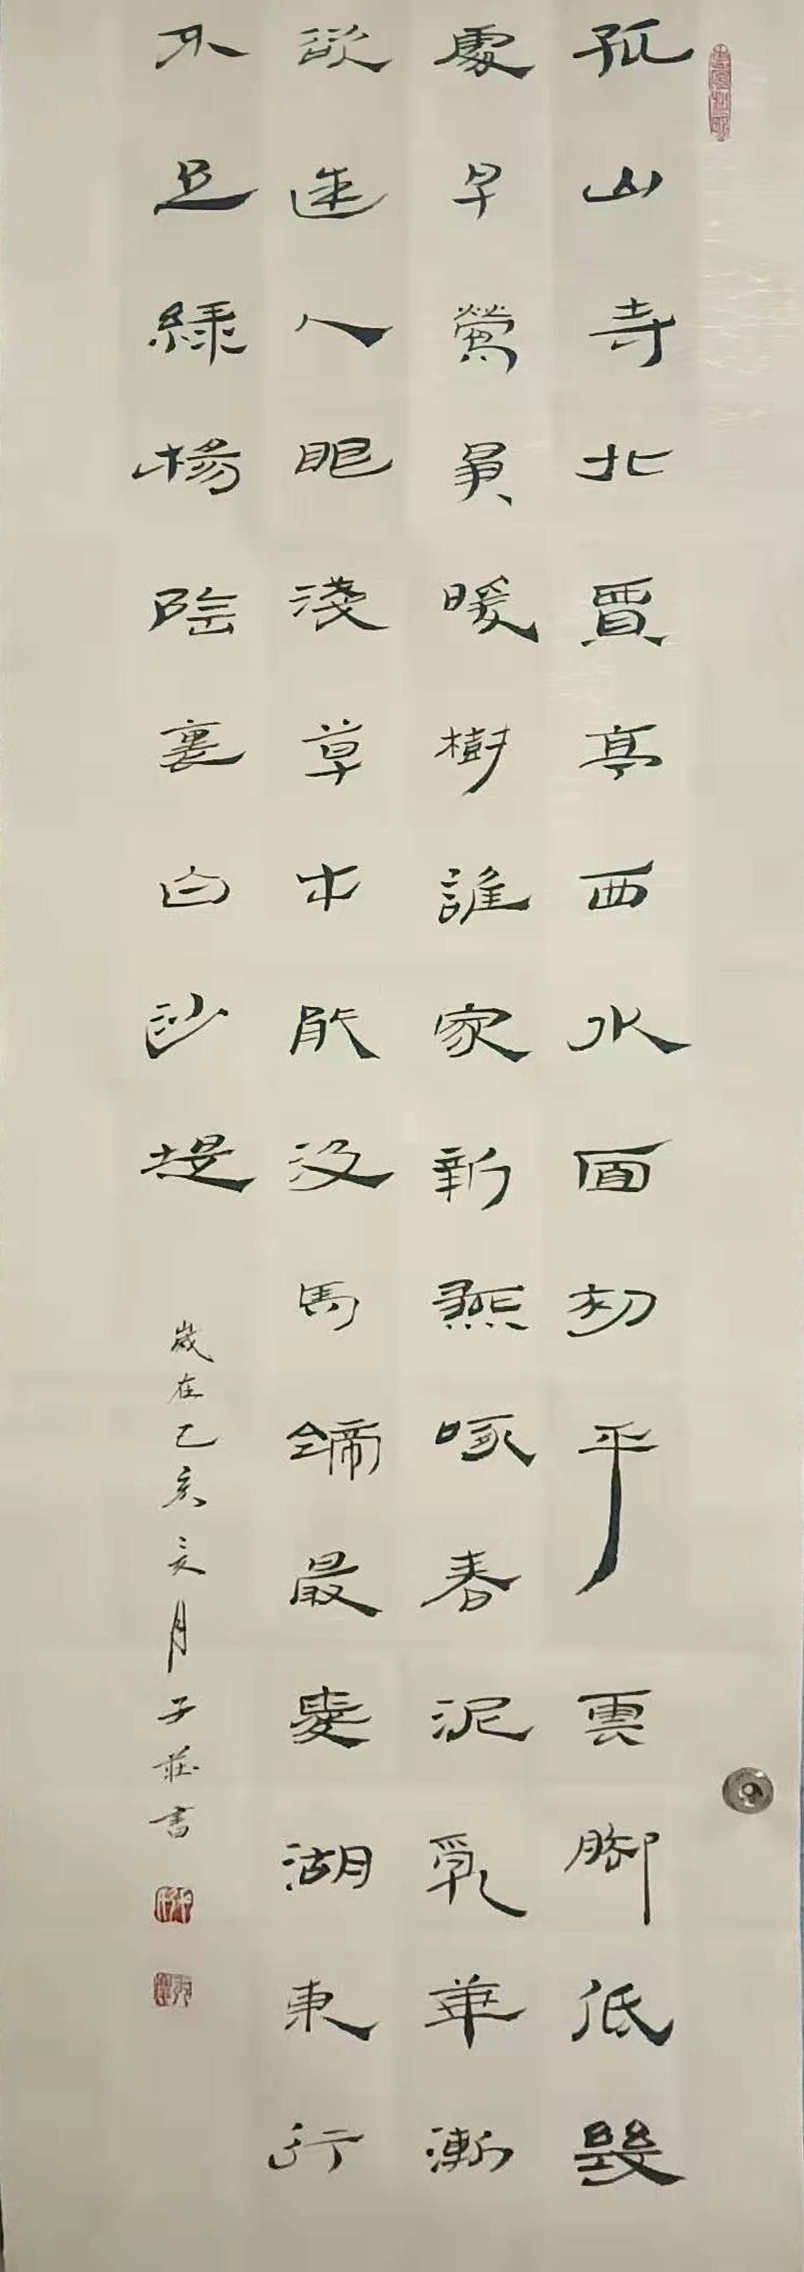 孤山寺北賈亭西水面初平雲腳低幾
處早鶯爭暖樹誰家新燕啄春泥亂華漸
欲迷人眼淺草才能没馬蹄最愛湖東行
不足綠楊陰裏白沙堤
歲在己亥亥月子莊書